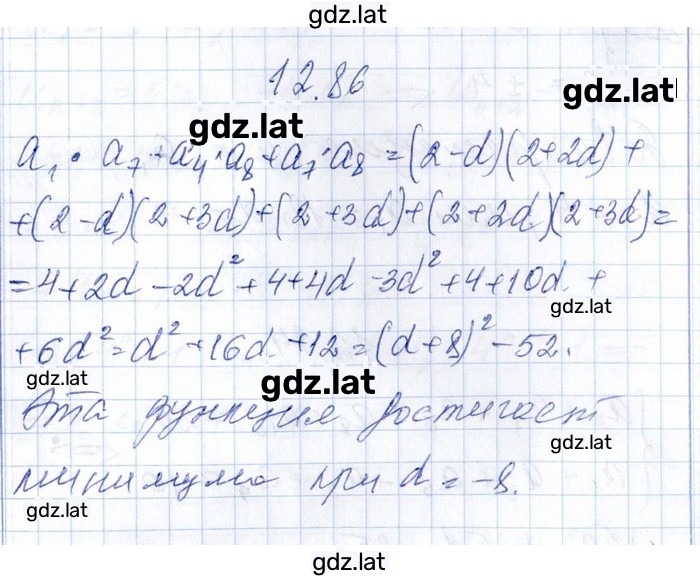 gdz.lat
12.86
gdz.lat
gdz.lat
a₁·a₇+a₄·a₈+a₇·a₈=(2-d)(2+2d)+
+(2-d)(2+3d)+(2+3d)+(2+2d)(2+3d)=
=4+2d-2d²+4+4d-3d²+4+10d+
gdz.lat
+6d²=d²+16d+12=(d+8)²-52.
gdz.lat
gdz.lat
Эта функция достигает
gdz.lat
минимума при d=-8.
gdz.lat
gdz.lat